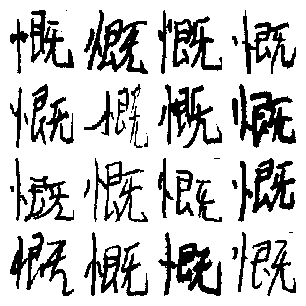 慨慨慨慨
慨慨慨慨
慨慨慨慨
慨慨慨慨